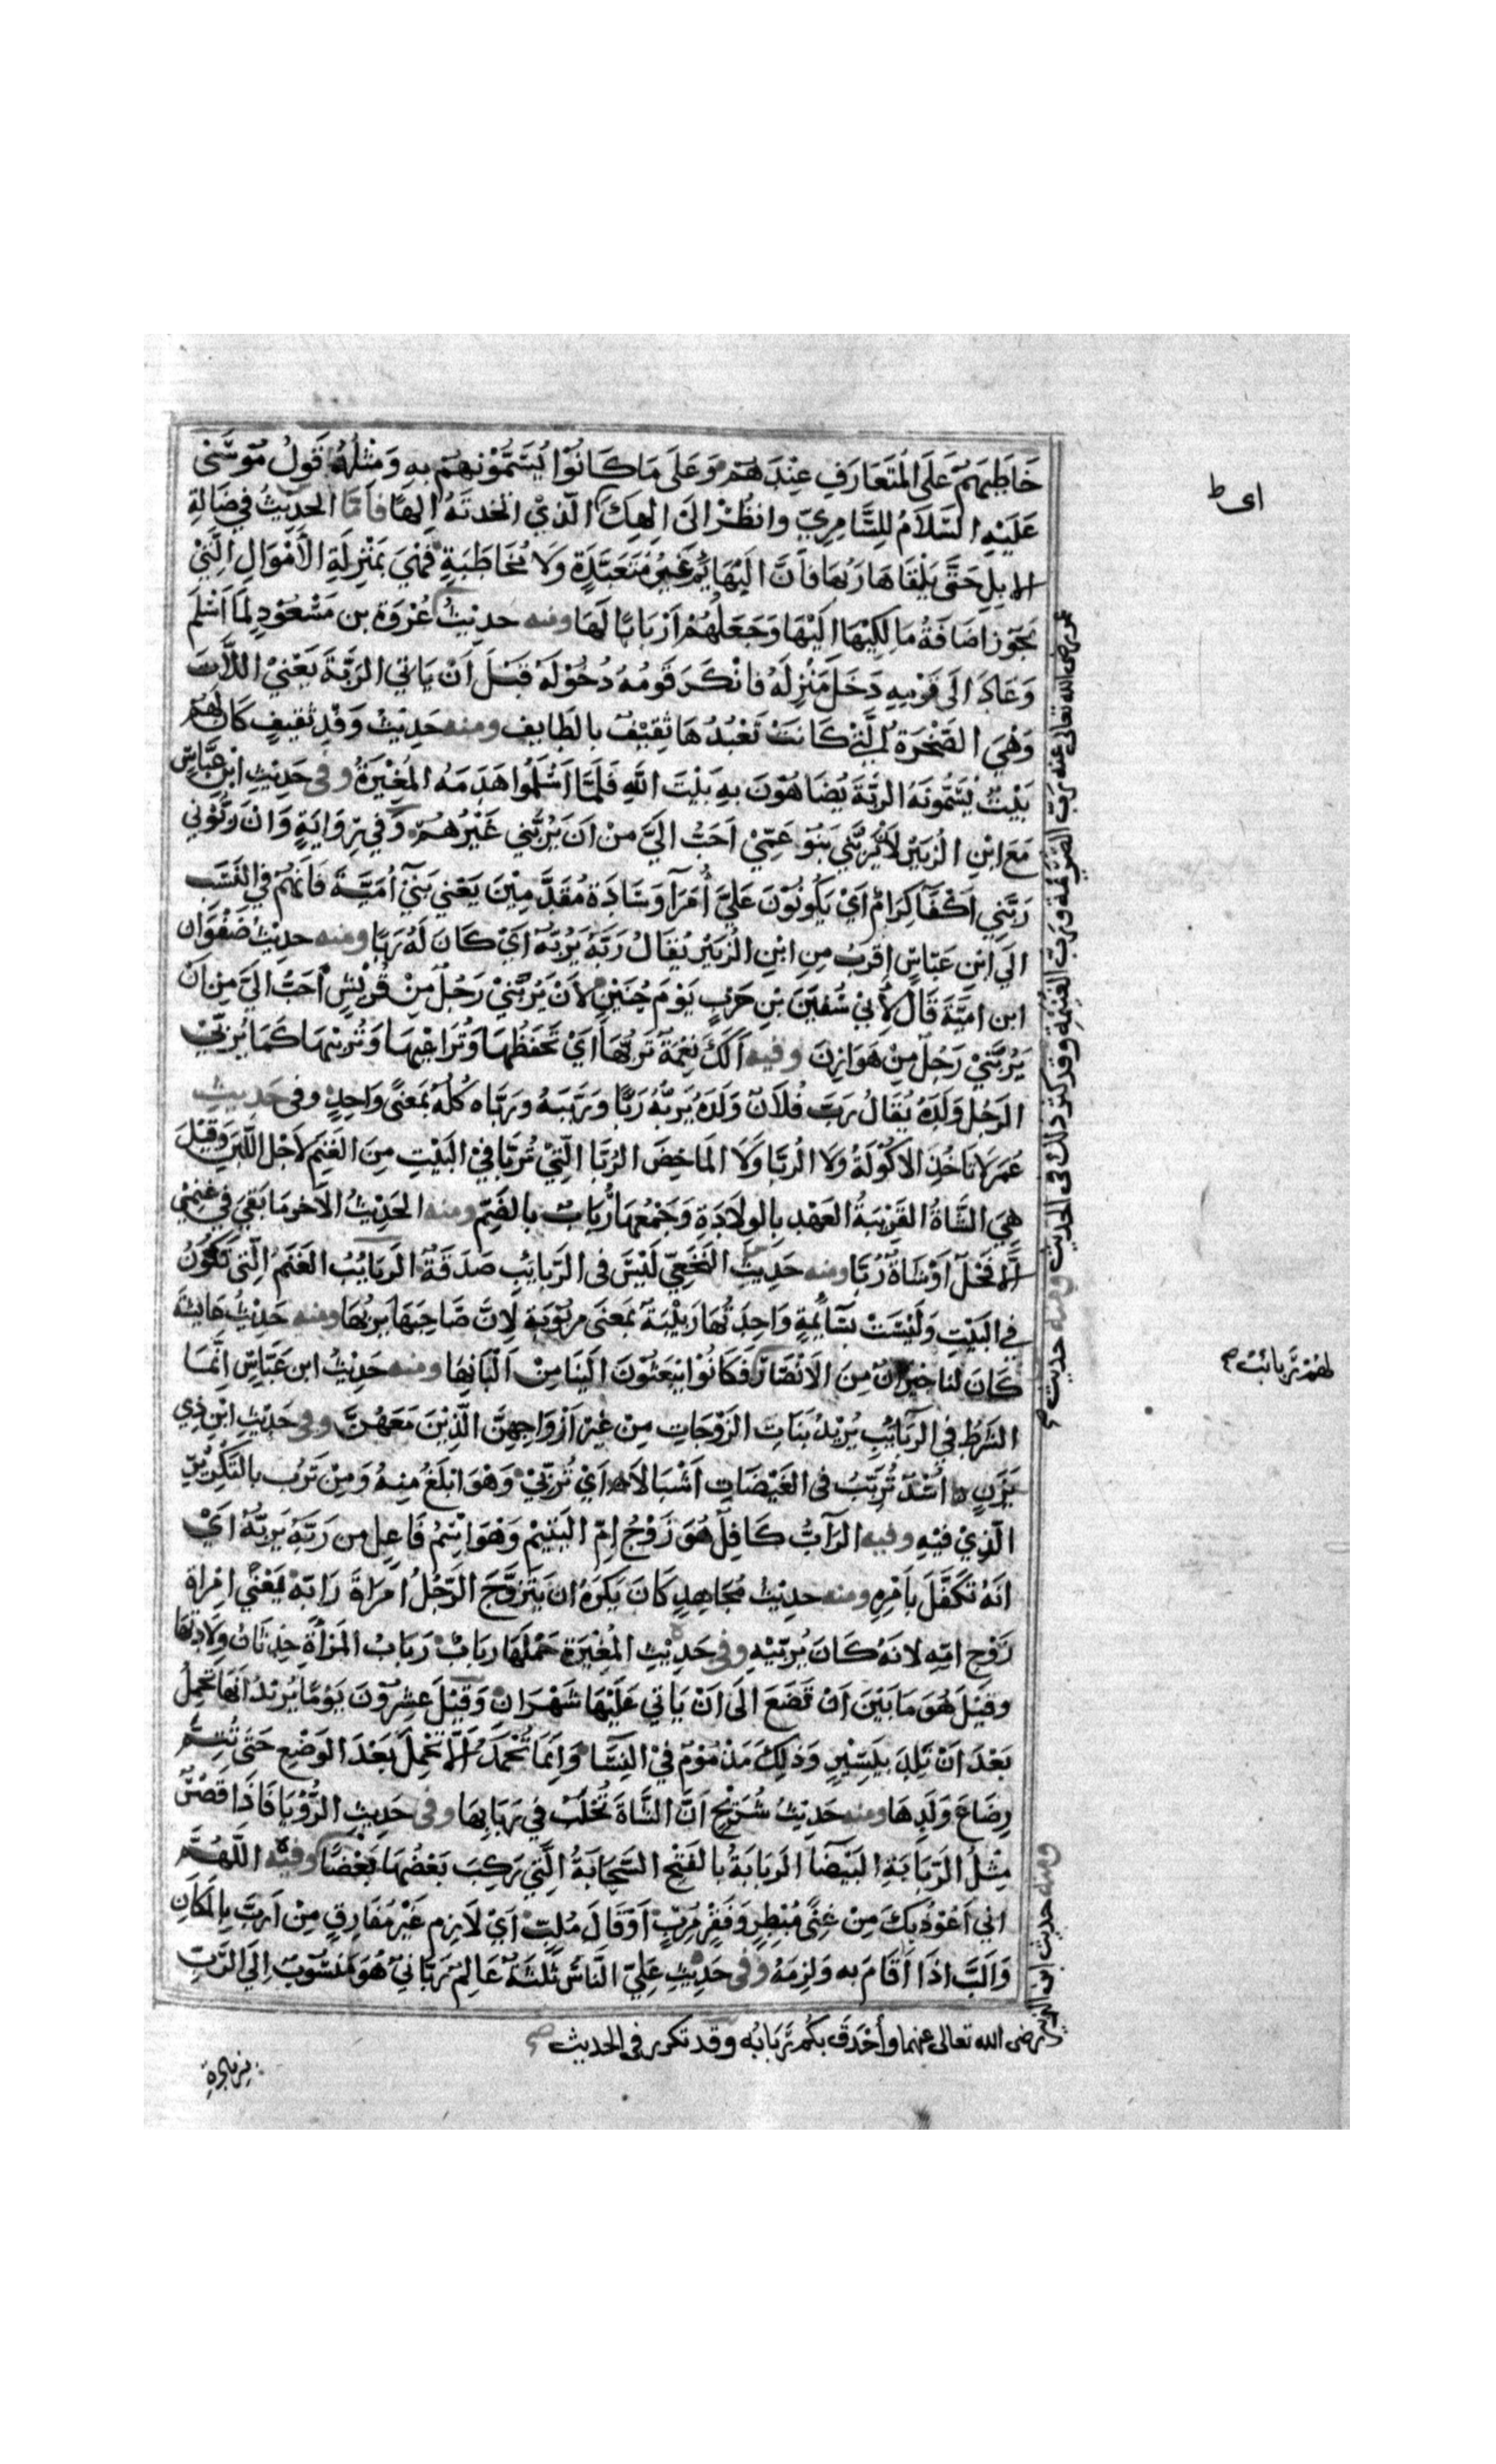 خَاطِبَهُمْ عَلَى الْمُتَعَارَفِ عِنْدَهُمْ وَعَلَى مَا كَانُوْا يُسَمُّوْنَهُمْ بِهِ وَمِثْلُهُ قَولُ مُوْسٰى
عَلَيْهِ السَّلَامُ لِلسَّامِرِيِّ وانظُرْ الَىٰ الٰهِكَ الَّذِيْ اتخذتَهُ الٰهًا فاَمَّا الحَدِيْثُ فِي ضَالَّةِ
الابِلِ حَتَّى يَلْقَاهَا رَبُّهَا فَاَنَّ الْبَهَايِمَ غَيْرُ مُتَعَبَّدَةٍ وَلَا مُخَاطَبَةٍ فَهْيَ بِمَنْزِلَةِ الأَمْوَالِ الَّتِيْ
تَجُوْز اضَافَةُ مَالِكِيْهَا الَيْهَا وَجَعْلُهُمْ اَرْبَابًا لَهَا ومنه حديْثُ عُرْوَة بن مَسْعُوْدٍ لَمَّا اَسْلَمَ
وَعَادَ الَى قَوْمِهِ دَخَلَ مَنْزِلَهُ فَانْكَرَ قَومُهُ دُخُوْلَهُ قَبْلَ اَنْ يَاتِيَ الرَّبَّةَ يَعْنِيْ اللَّاتَ
وَهْيَ الصَّخْرَةُ الَّتِيْ كَانَتْ تَعْبُدُهَا ثَقِيْفٌ بالطَّايِفِ ومنه حَدِيْثُ وَفْدِ ثَقِيفٍ كَانَ لَهُمْ
بَيْتٌ يُسَمُّونَهُ الرَّبَّةَ يُضَاهُوْنَ بِهِ بَيْتَ اللّٰهِ فَلَمَّا اَسْلَمُوا هَدَمَهُ الْمُغِيْرَةُ وفى حَدِيْثِ ابْنِ عَبَّاسٍ
مَعَ ابْنِ الزُّبَيْرِ لَأَنْ يَرُبَّنِي بَنُوْ عَمِّيْ اَحَبُّ الَيَّ مِنْ اَنْ يَرُبَّنِي غَيْرُهُمْ وَفِي رِوَايَةٍ وَانْ رَبُّوْنِي
رَبَّنِي اَكْفَا كِرَامٌ اَيْ يَكُوْنُوْنَ عَلَيَّ اُمَرَآ وَسَادَة مُقَدَّمِيْنَ يَعْنِي بَنِيْ اُمَيَّةَ فَانَّهُمْ فِي النَّسَبِ
الَى ابْنِ عَبَّاسٍ اقْرَبُ مِنِ ابْنِ الزُّبَيْرِ يُقَالُ رَبَّهُ يَرُبُّهُ اَيْ كَانَ لَهُ رَبًّا ومنه حديْثُ صَفْوَان
ابن امَيَّة قَالَ لِأَبِيْ سُفْيَنَ بْنِ حَرْبٍ يَوْمَ حُنَيْنٍ لَأَنْ يَرُبَّنِيْ رَجُلٌ مِنْ قُرَيْشٍ اَحَبُّ الَيَّ مِن اَنْ
يَرُبَّنِيْ رَجُلٌ مِنْ هَوَازِنَ وفيه اَلَكَ نِعْمَةٌ تَرُبُّهَا اَيْ تَحْفَظُهَا وَتُرَاعِيْهَا وَتُرَبِّيْهَا كَمَا يُرَبِّيْ
الرَجُلُ وَلَدَهُ يُقَالُ رَبَّ فُلَانٌ وَلَدَهُ يَرُبُّهُ رَبًّا وَرَبَّبَهُ وَرَبَّاه كُلُّهُ بِمَعْنًى وَاحِدٍ وفى حَدِيْثِ
عُمَرَ لَا تَاخُذِ الاكُوْلَةَ وَلَا الرُّبَّا وَلَا المَاخِضَ الرُّبَّا الَّتِيْ تُرَبَّا فِيْ البَيْتِ مِنَ الغَنَمِ لَاجْلِ اللَّبَنِ وَقِيْلَ
هِيَ الشَّاةُ القَرِيْبَةُ الْعَهْدِ بِالوِلَادَةِ وَجَمْعُهَا رُبَابٌ بالضَّمِّ ومنه الحَدِيْثُ الآخر مَا بَقِيَ فِي غَنَمِيْ
الَّا فَحْلٌ اَوْ شَاةٌ رُبَّا ومنه حَدِيْثُ النَّخَعِيِّ لَيْسَ فى الرَّبَائِبِ صَدَقَةٌ الرَبَايُبُ الغَنَمُ الَّتِى تَكُوْنُ
فِي البَيْتِ وَلَيْسَتْ بِسَآيِمَةٍ وَاحِدَتُهَا رَبِيْبَةٌ بِمَعْنَى مَرْبُوْبَةٍ لِانَّ صَاحِبَهَا يَرُبُّهَا ومنه حَدِيْثُ عَايشَة
كَانَ لنا جِيْرَانٌ مِنَ الْاَنْصَارِ فَكَانُوْا يَبْعَثُوْنَ الَيْنَا مِنْ اَلْبَانِهَا ومنه حَدِيْثُ ابن عَبَّاسٍ انَّمَا
الشَّرْطُ فِي الرَّبَآيِبِ يُرِيْدُ بَنَاتِ الزَوْجَاتِ مِنْ غَيْرِ اَزْوَاجِهِنَّ الَّذِيْنَ مَعَهُنَّ وفى حَدِيْثِ ابْنِ ذِي
يَزَنٍ اُسْدٌ تُرَبِّبُ فى الغَيْضَاتِ اَشْبَالَا اَيْ تُرَبِّيْ وَهْوَ ابْلَغُ مِنهُ وَمِنْ تَرُبُّ بالتَكْرِيْرِ
الَّذِيْ فيْهِ وفيه الرَّآبُّ كَافِلٌ هُوَ زَوْجُ امِّ اليَتِيْمِ وَهْوَ اسْمُ فَاعِلٍ من رَبَّهُ يَرُبُّهُ اَيْ
انَهُ تَكَفَّلَ بِاَمْرِهِ ومنه حديْثُ مُجَاهِدٍ كَانَ يَكْرَهُ ان يَتَزَوَّجَ الرَّجُلُ امْرَاةَ رَابِّهِ يَعْنِي امْرَاة
زَوْج امِّهِ لانَّهُ كَانَ يُرَبِّيْهِ وفى حَدِيْثِ المُغِيْرَةِ حَمْلُهَا رِبَابٌ رَبَابُ المَرْأَةِ حِدْثَانُ وِلَادَتِهَا
وقِيْلَ هُوَ مَا بَيْنَ اَنْ تَضَعَ الَى اَنْ يَاتِي عَلَيْهَا شَهْرَانِ وَقِيْلَ عِشْرُوْنَ يَوْمًا يُرِيْدُ انَّهَا تَحْمِلُ
بَعْدَ اَنْ تَلِدَ بِيَسِيْرٍ وَذٰلِكَ مَذْمُوْمٌ فِيْ النِّسَآ وَانَّمَا تُحْمَدُ الَّا تَحْمِلَ بَعْدَ الوَضْعِ حَتّٰى تُتِمَّ
رِضَاعَ وَلَدِهَا ومنه حَدِيْثُ شُرَيْحٍ اَنَّ الشَّاةَ تُحْلَبُ فِي رِبَابِهَا وفى حَدِيثِ الرُّؤْيَا فَاذَا قَصْرٌ
مِثْلُ الرَّبَابَةِ البَيْضَا الرَبَابَةُ بالفَتْحِ السَّحَابَةُ الَّتِي رَكِبَ بَعْضُهَا بَعْضًا وفيه اللّٰهُمَّ
انِّي اَعُوْذُ بِكَ مِنْ غِنًى مُبْطِرٍ وَفَقْرٍ مُرِبٍّ اَوْ قَالَ مُلِبٍّ اَيْ لَازِم غَيْر مُفَارِقٍ مِنْ اَرَبَّ بِالمَكَانِ
وَاَلَبَّ اذَا اَقَامَ به وَلزِمَهُ وفى حَدِيْثِ عَلِيٍّ النَّاسُ ثَلٰثَةٌ عَالِمٌ رَبَّانِيٌّ هُوَ مَنْسُوْبٌ اِلَى الرَّبِّ
اى ط
عمر رضى الله تعالى عنه رب الصُّرَيْمَة ورب الغُنَيْمَةِ وقد كثر ذلك فى الحديث ومنه حديث صح
لهُمْ رَبائبُ صح
ومنه حديث ابن الزبير
رضى الله تعالى عنهما وأحْدَقَ بكُم رَبَابُه وقد تكرر فى الحديث صح
بزيادة